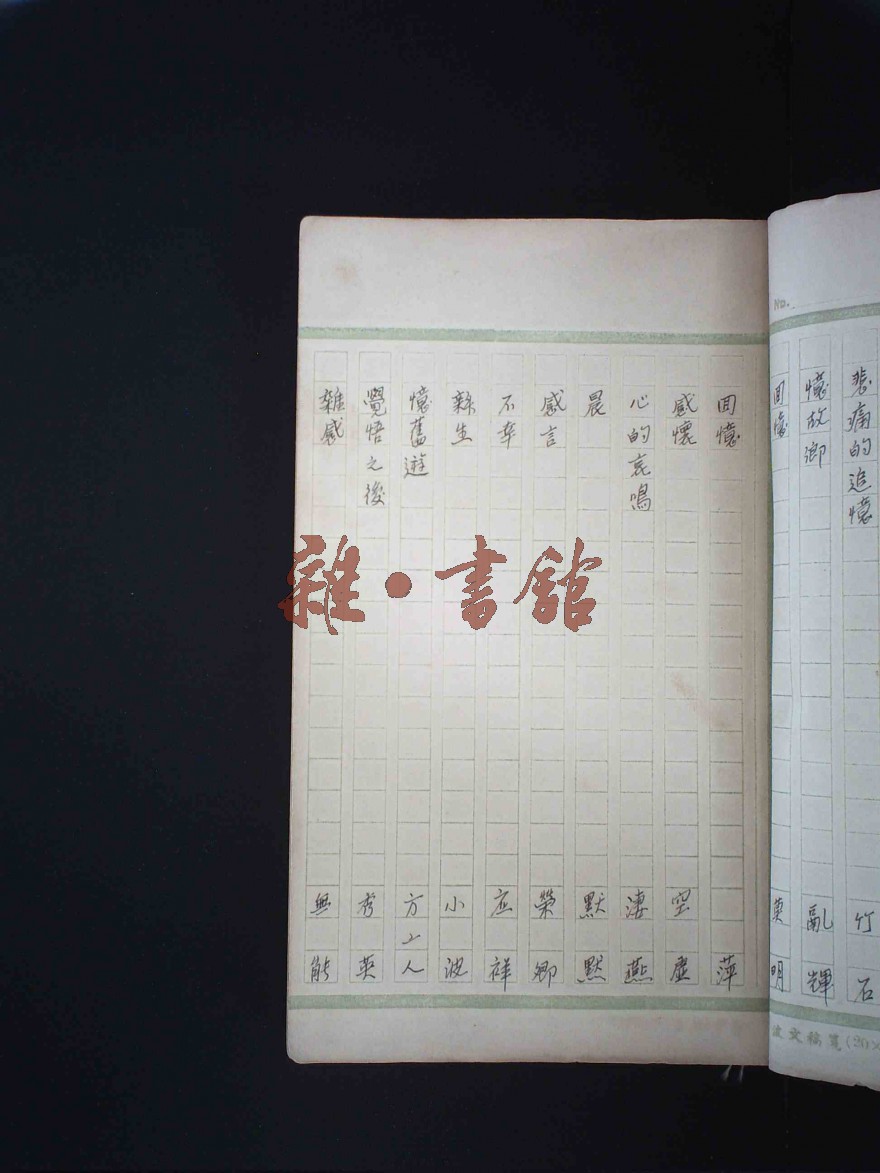 No.
悲痛的追憶 竹石
憶故鄉 亂輝
回憶 英明
波文稿箋(20×
回憶 萍
感懷 空虛
心的哀鳴 淒燕
晨 默默
感言 榮卿
不幸 应祥
新生 小波
憶舊遊 方工人
覺悟之後 秀英
雜感 無能
雜·書館